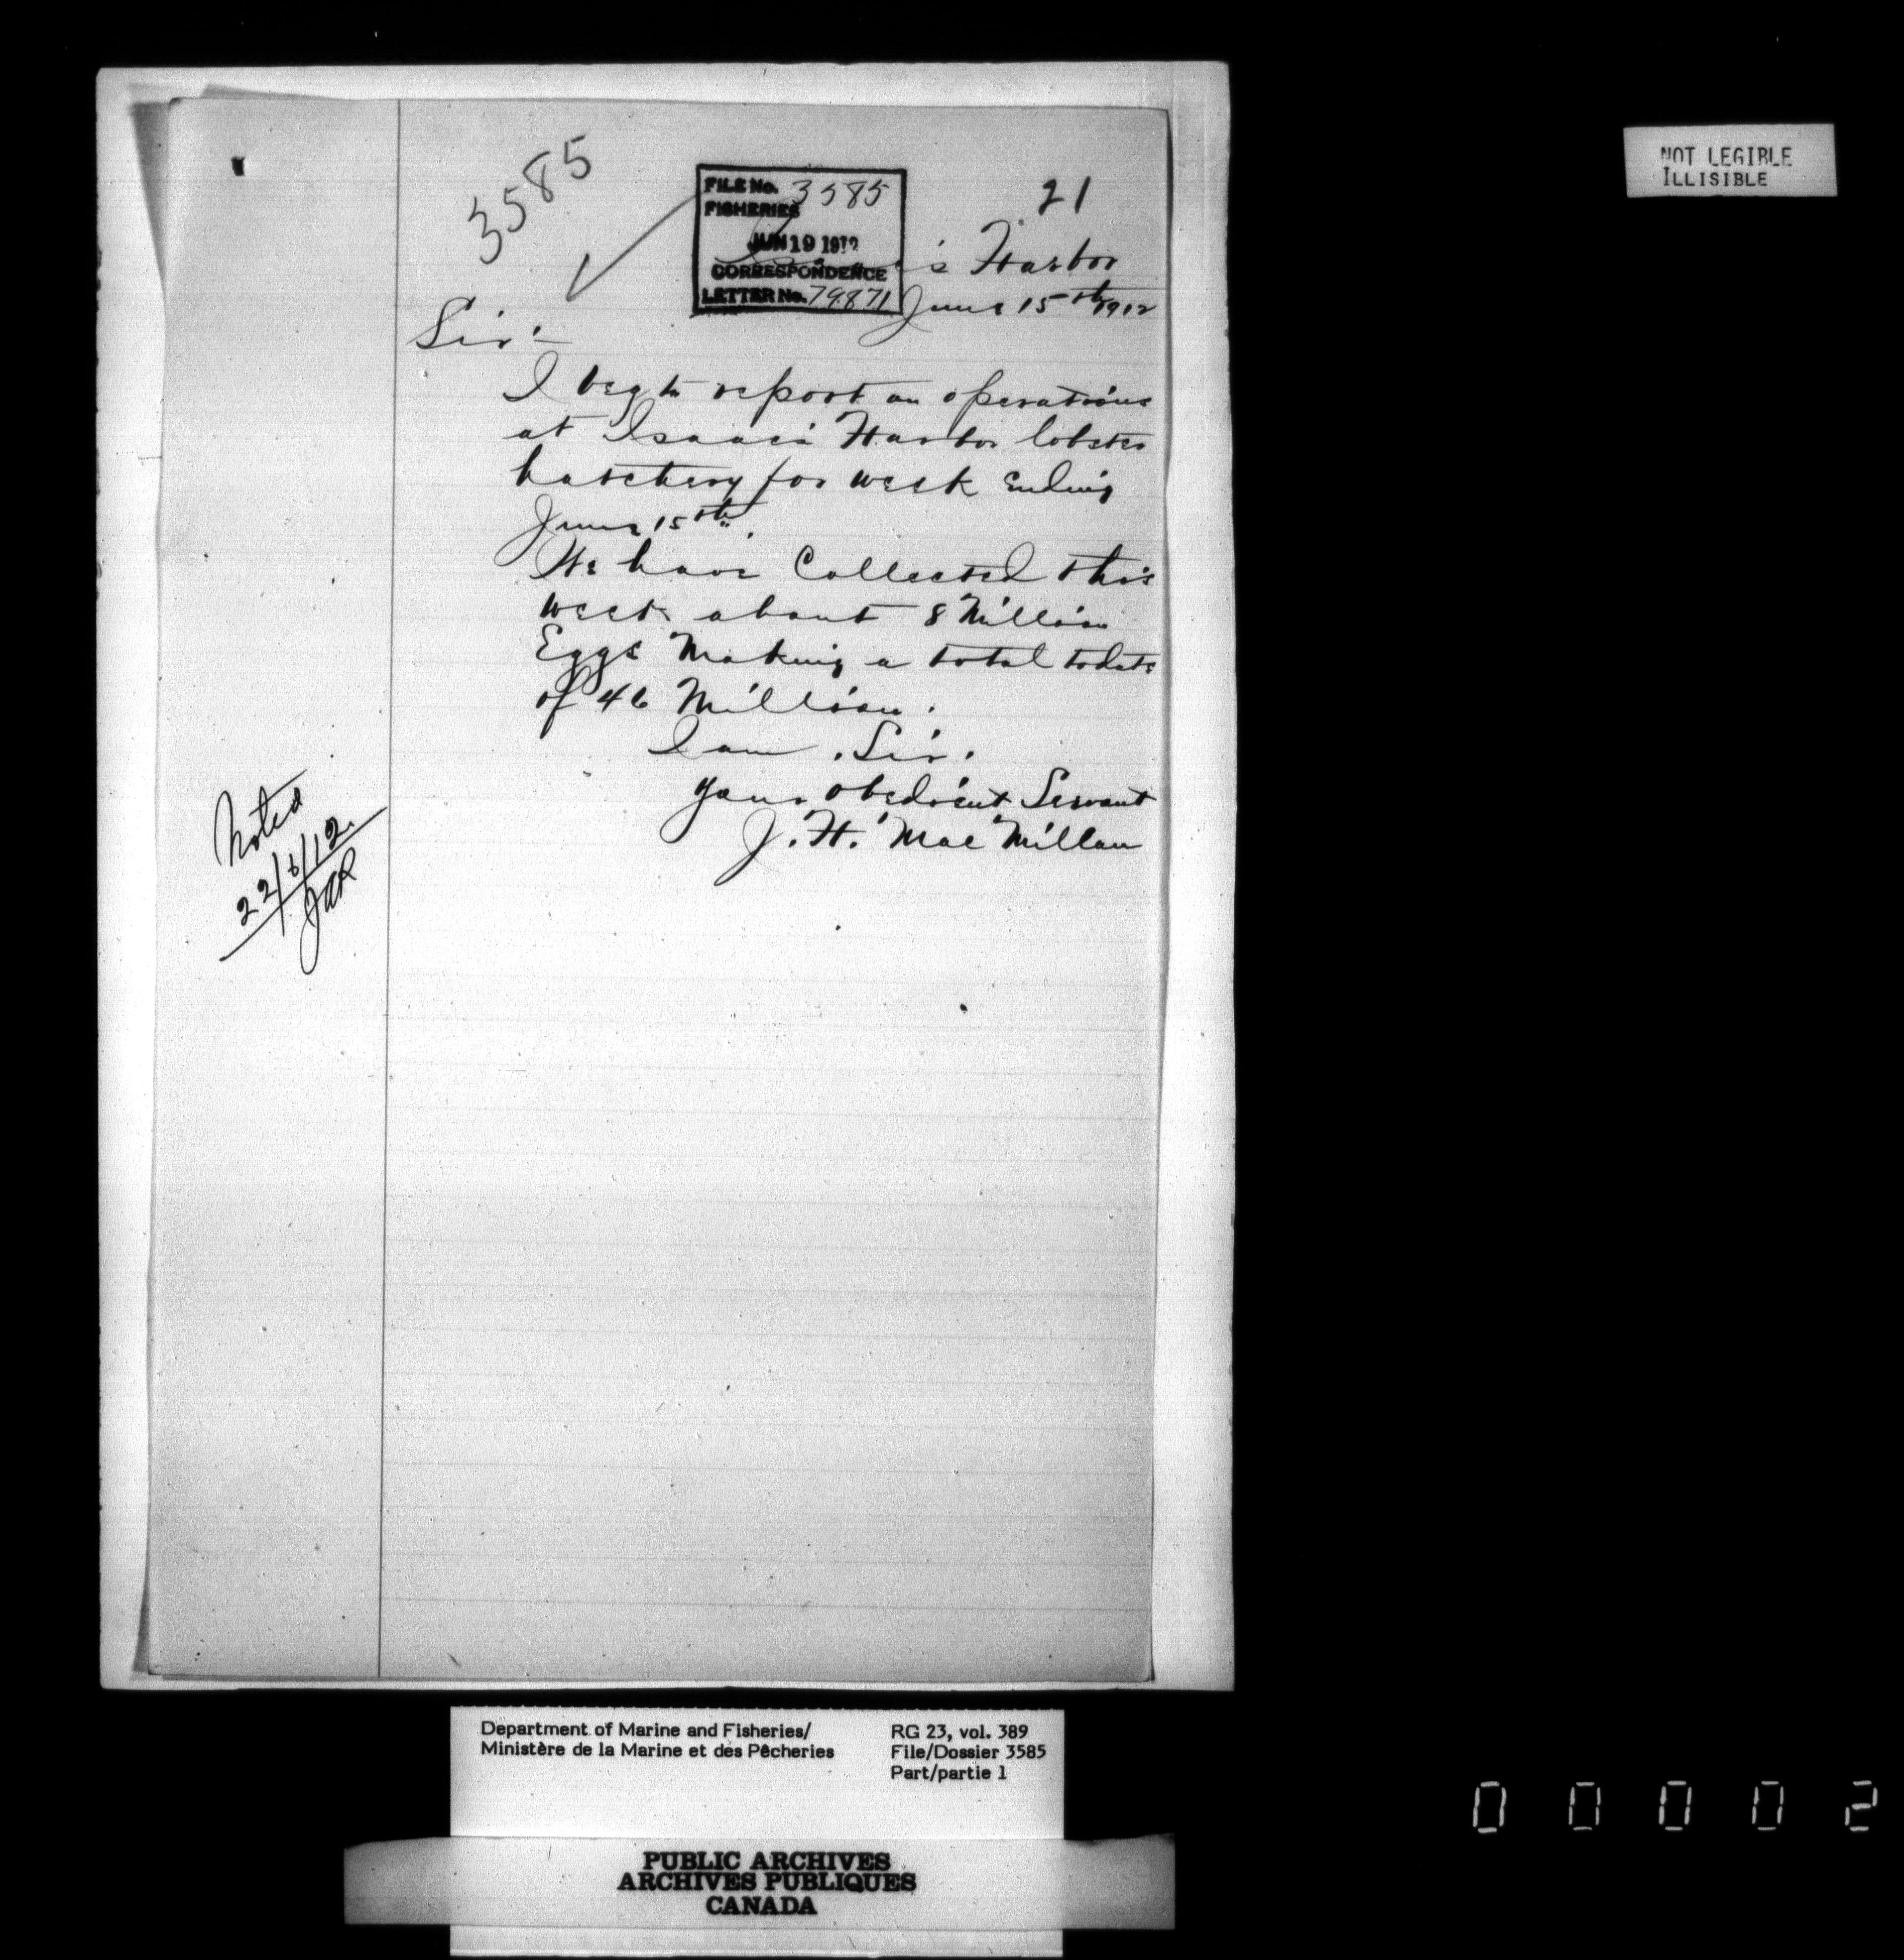 3585
FILE No. 3585
FISHERIES
JUN 19 1912
CORRESPONDENCE
LETTER No. 79871
21
's Harbor
June 15th 1912
Sir:-
I beg to report on operations
at Isaac's Harbor lobster
hatchery for week Ending
June 15th.
We have Collected this
week about 8 Million
Eggs Making a total todate
of 46 Million.
I am, Sir,
your obedient Servant
J. H. MacMillan
Noted
22/6/12
JAR
NOT LEGIBLE
ILLISIBLE
Department of Marine and Fisheries/
Ministère de la Marine et des Pêcheries
RG 23, vol. 389
File/Dossier 3585
Part/partie 1
PUBLIC ARCHIVES
ARCHIVES PUBLIQUES
CANADA
0 0 0 0 2